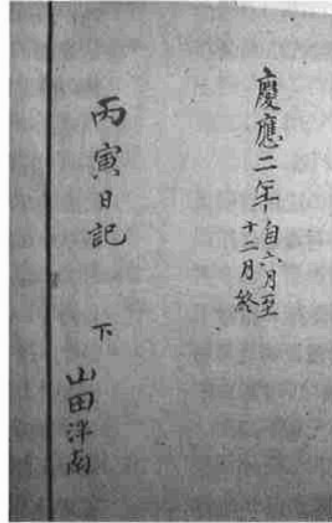 慶應二年自六月至
十二月終
丙寅日記 下
山田洋南